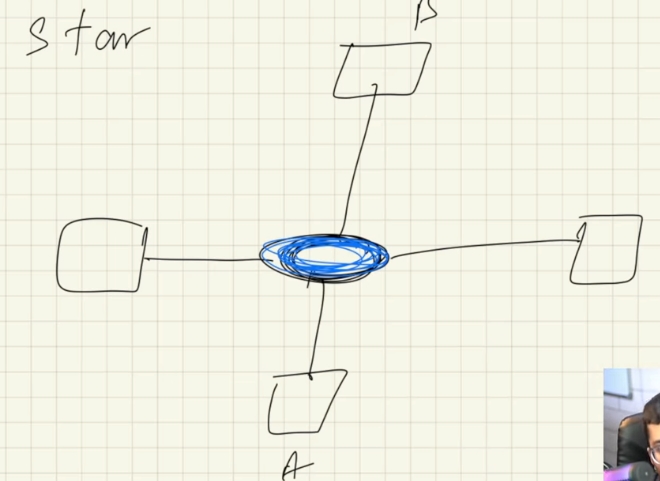 star
B
A